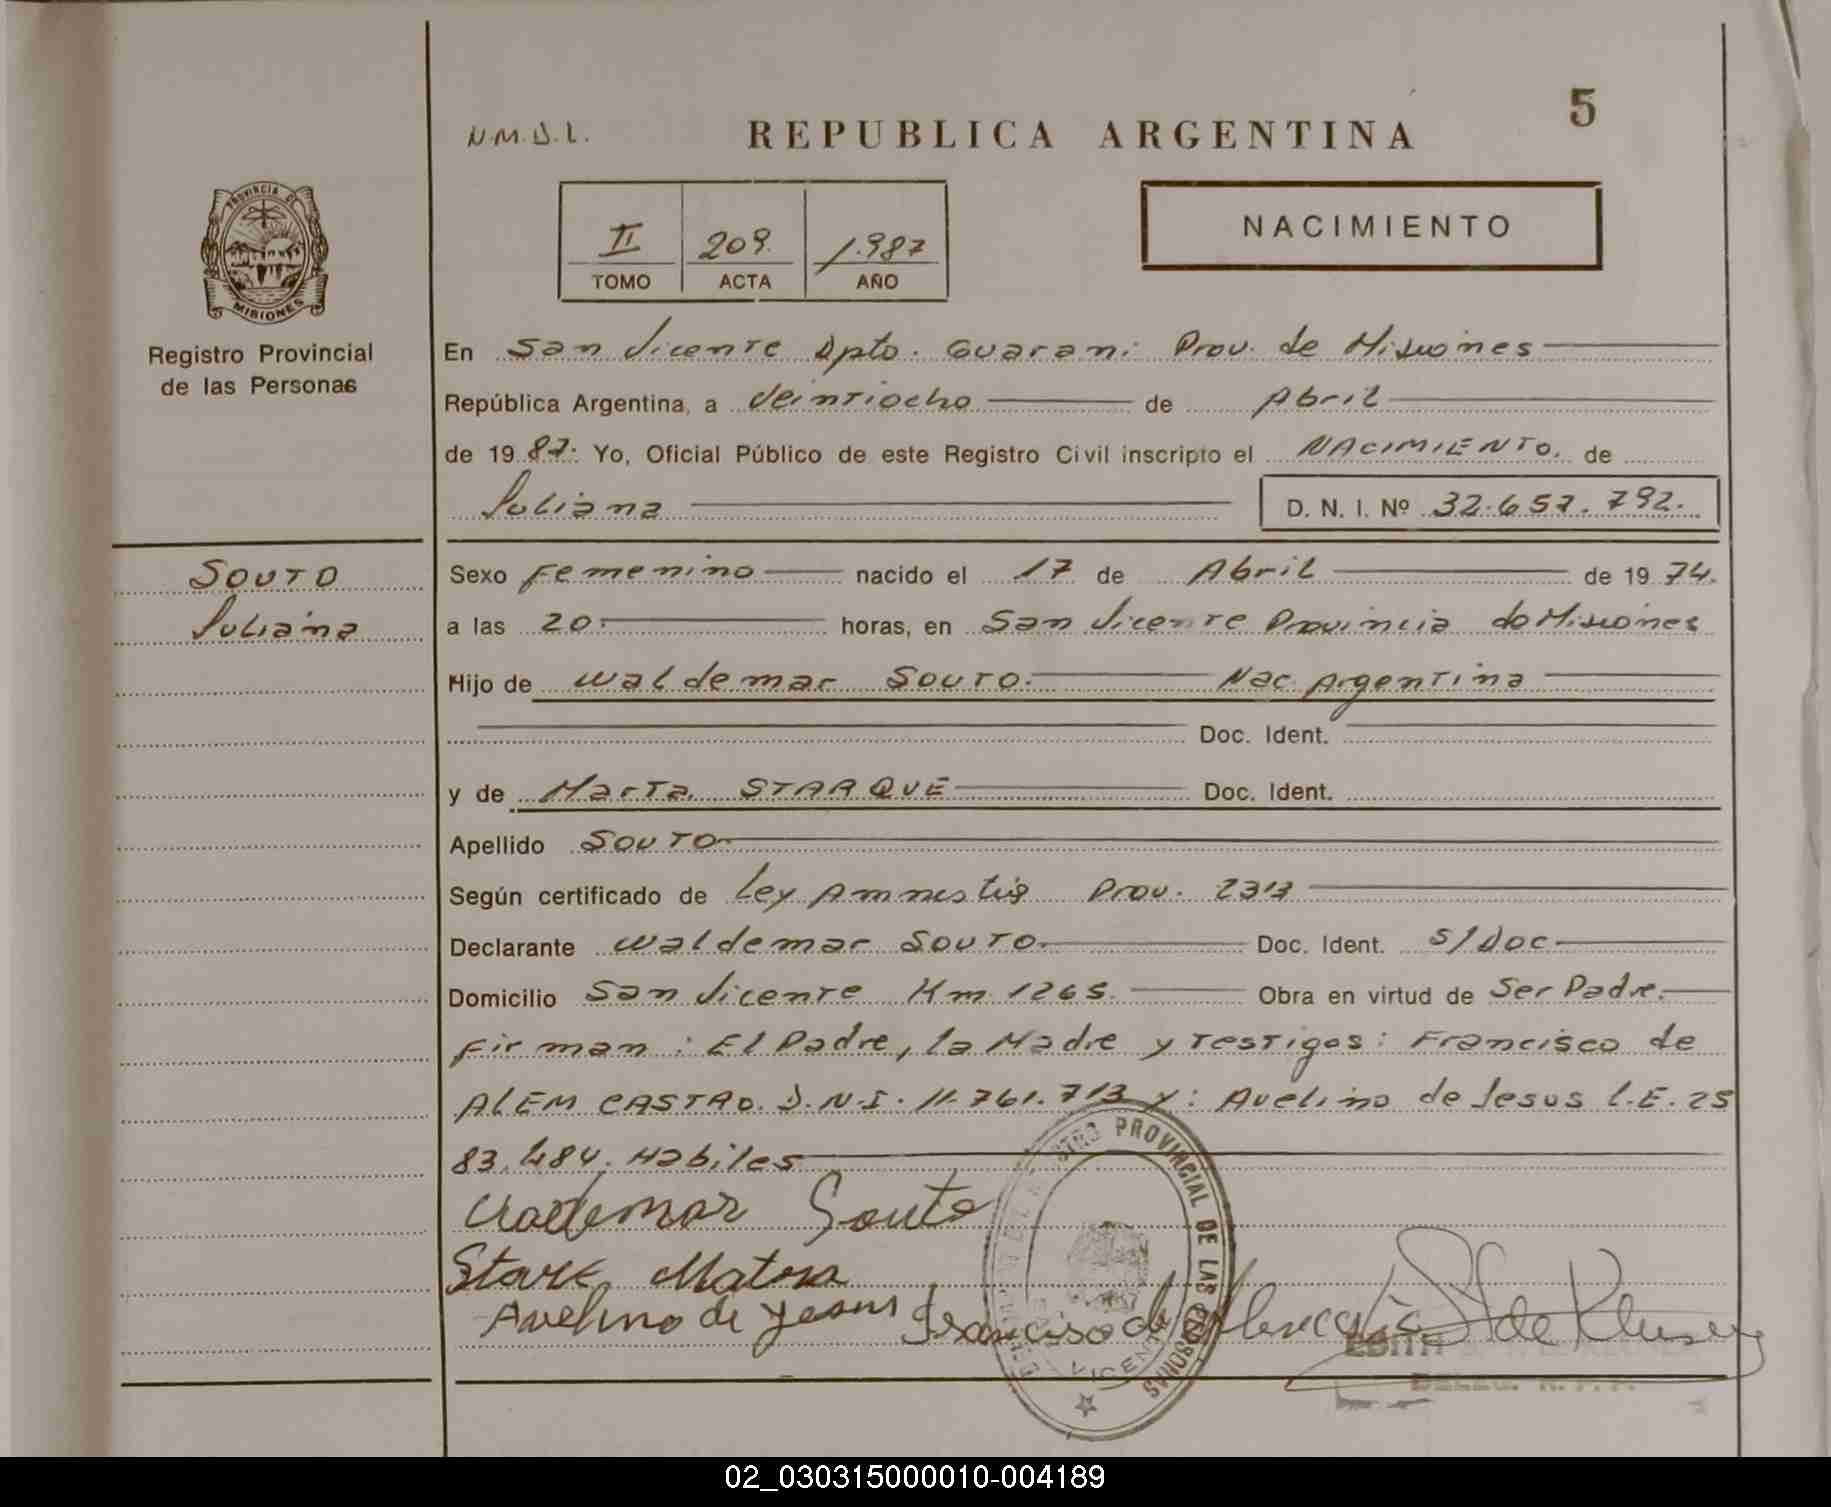 5
N.M.D.L.
REPUBLICA ARGENTINA
PROVINCIA DE
MISIONES
Registro Provincial
de las Personas
II 209. 1.987
TOMO ACTA AÑO
NACIMIENTO
En San Vicente Dpto. Guarani Prov. de Misiones
República Argentina, a Veintiocho de Abril
de 19 87. Yo, Oficial Público de este Registro Civil inscripto el NACIMIENTO. de
Juliana D. N. I. Nº 32.657.792.
SOUTO
Juliana
Sexo Femenino nacido el 17 de Abril de 19 74.
a las 20 horas, en San Vicente Provincia de Misiones
Hijo de Waldemar SOUTO. Nac. Argentina
Doc. Ident.
y de Marta STARQUE Doc. Ident.
Apellido SOUTO
Según certificado de Ley Amnistia Prov. 2313
Declarante Waldemar SOUTO. Doc. Ident. S/Doc
Domicilio San Vicente Km 1265. Obra en virtud de Ser Padre.
Firman: El Padre, la Madre y Testigos: Francisco de
ALEM CASTRO. D.N.I. 11.761.713 y: Avelino de Jesus L.E. 25
83.484. Habiles
Waldemar Souto
Avelino de Jesus Francisco de
PROVINCIAL DE LAS PERSONAS
VICENTE
EDITH
DELEG. R. P. P.
02_030315000010-004189